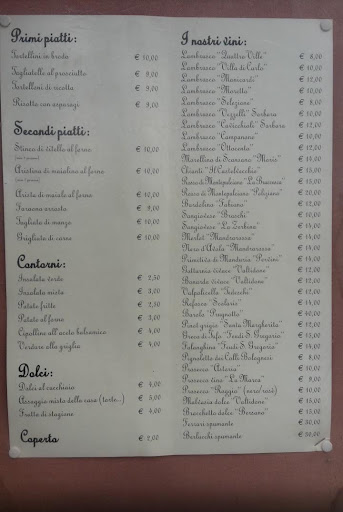 Primi piatti:
Tortellini in brodo € 10,00
Tagliatelle al prosciutto € 9,00
Tortelloni di ricotta € 9,00
Risotto con asparagi € 9,00
Secondi piatti:
Stinco di vitello al forno € 10,00
Arostino di maialino al forno € 10,00
Arista di maiale al forno € 10,00
Faraona arrosto € 9,00
Tagliata di manzo € 10,00
Grigliata di carne € 10,00
Contorni:
Insalata verde € 2,50
Insalata mista € 3,00
Patate fritte € 2,50
Patate al forno € 3,00
Cipolline all'aceto balsamico € 4,00
Verdure alla griglia € 4,00
Dolci:
Dolci al cucchiaio € 4,00
Assaggio misto della casa (torte...) € 5,00
Frutta di stagione € 4,00
Coperto € 2,00
I nostri vini:
Lambrusco "Quattro Ville" € 8,00
Lambrusco "Villa di Corlo" € 10,00
Lambrusco "Manicardi" € 12,00
Lambrusco "Moretto" € 10,00
Lambrusco "Selezione" € 8,00
Lambrusco "Vezzelli" Sorbara € 10,00
Lambrusco "Cavicchioli" Sorbara € 12,00
Lambrusco "Campanone" € 10,00
Lambrusco "Ottocento" € 12,00
Morellino di Scansano "Moris" € 14,00
Chianti "Il Castelvecchio" € 14,00
Rosso di Montepulciano "La Braccesca" € 15,00
Rosso di Montepulciano "Poliziano" € 20,00
Bardolino "Fabiano" € 12,00
Sangiovese "Braschi" € 10,00
Sangiovese "La Zerbina" € 14,00
Merlot "Mandrarossa" € 14,00
Nero d'Avola "Mandrarossa" € 14,00
Primitivo di Manduria "Pervini" € 14,00
Gutturnio vivace "Valtidone" € 12,00
Bonarda vivace "Valtidone" € 12,00
Valpolicella € 12,00
Refosco € 14,00
Barolo € 40,00
Pinot grigio "Santa Margherita" € 12,00
Greco di Tufo "Feudi S. Gregorio" € 15,00
Falanghina "Feudi S. Gregorio" € 14,00
Pignoletto dei Colli Bolognesi € 9,00
Prosecco "Astoria" € 10,00
Prosecco "La Marca" € 9,00
Prosecco € 10,00
Malvasia dolce "Valtidone" € 15,00
Brachetto dolce "Bersano" € 15,00
Ferrari spumante € 30,00
Berlucchi spumante € 30,00